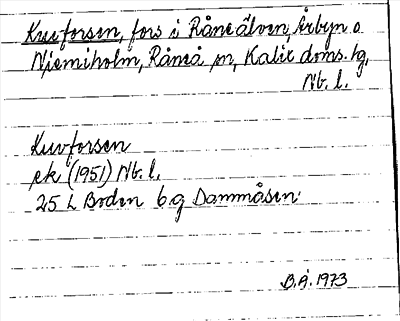 Kuvforsen, fors i Råneälven, Årbyn o
Niemiholm, Råneå sn, Kalix doms. hg,
Nb. l.
Kuvforsen
ek (1951) Nb. l.
25 L Boden b g Dammåsen
B.Å. 1973